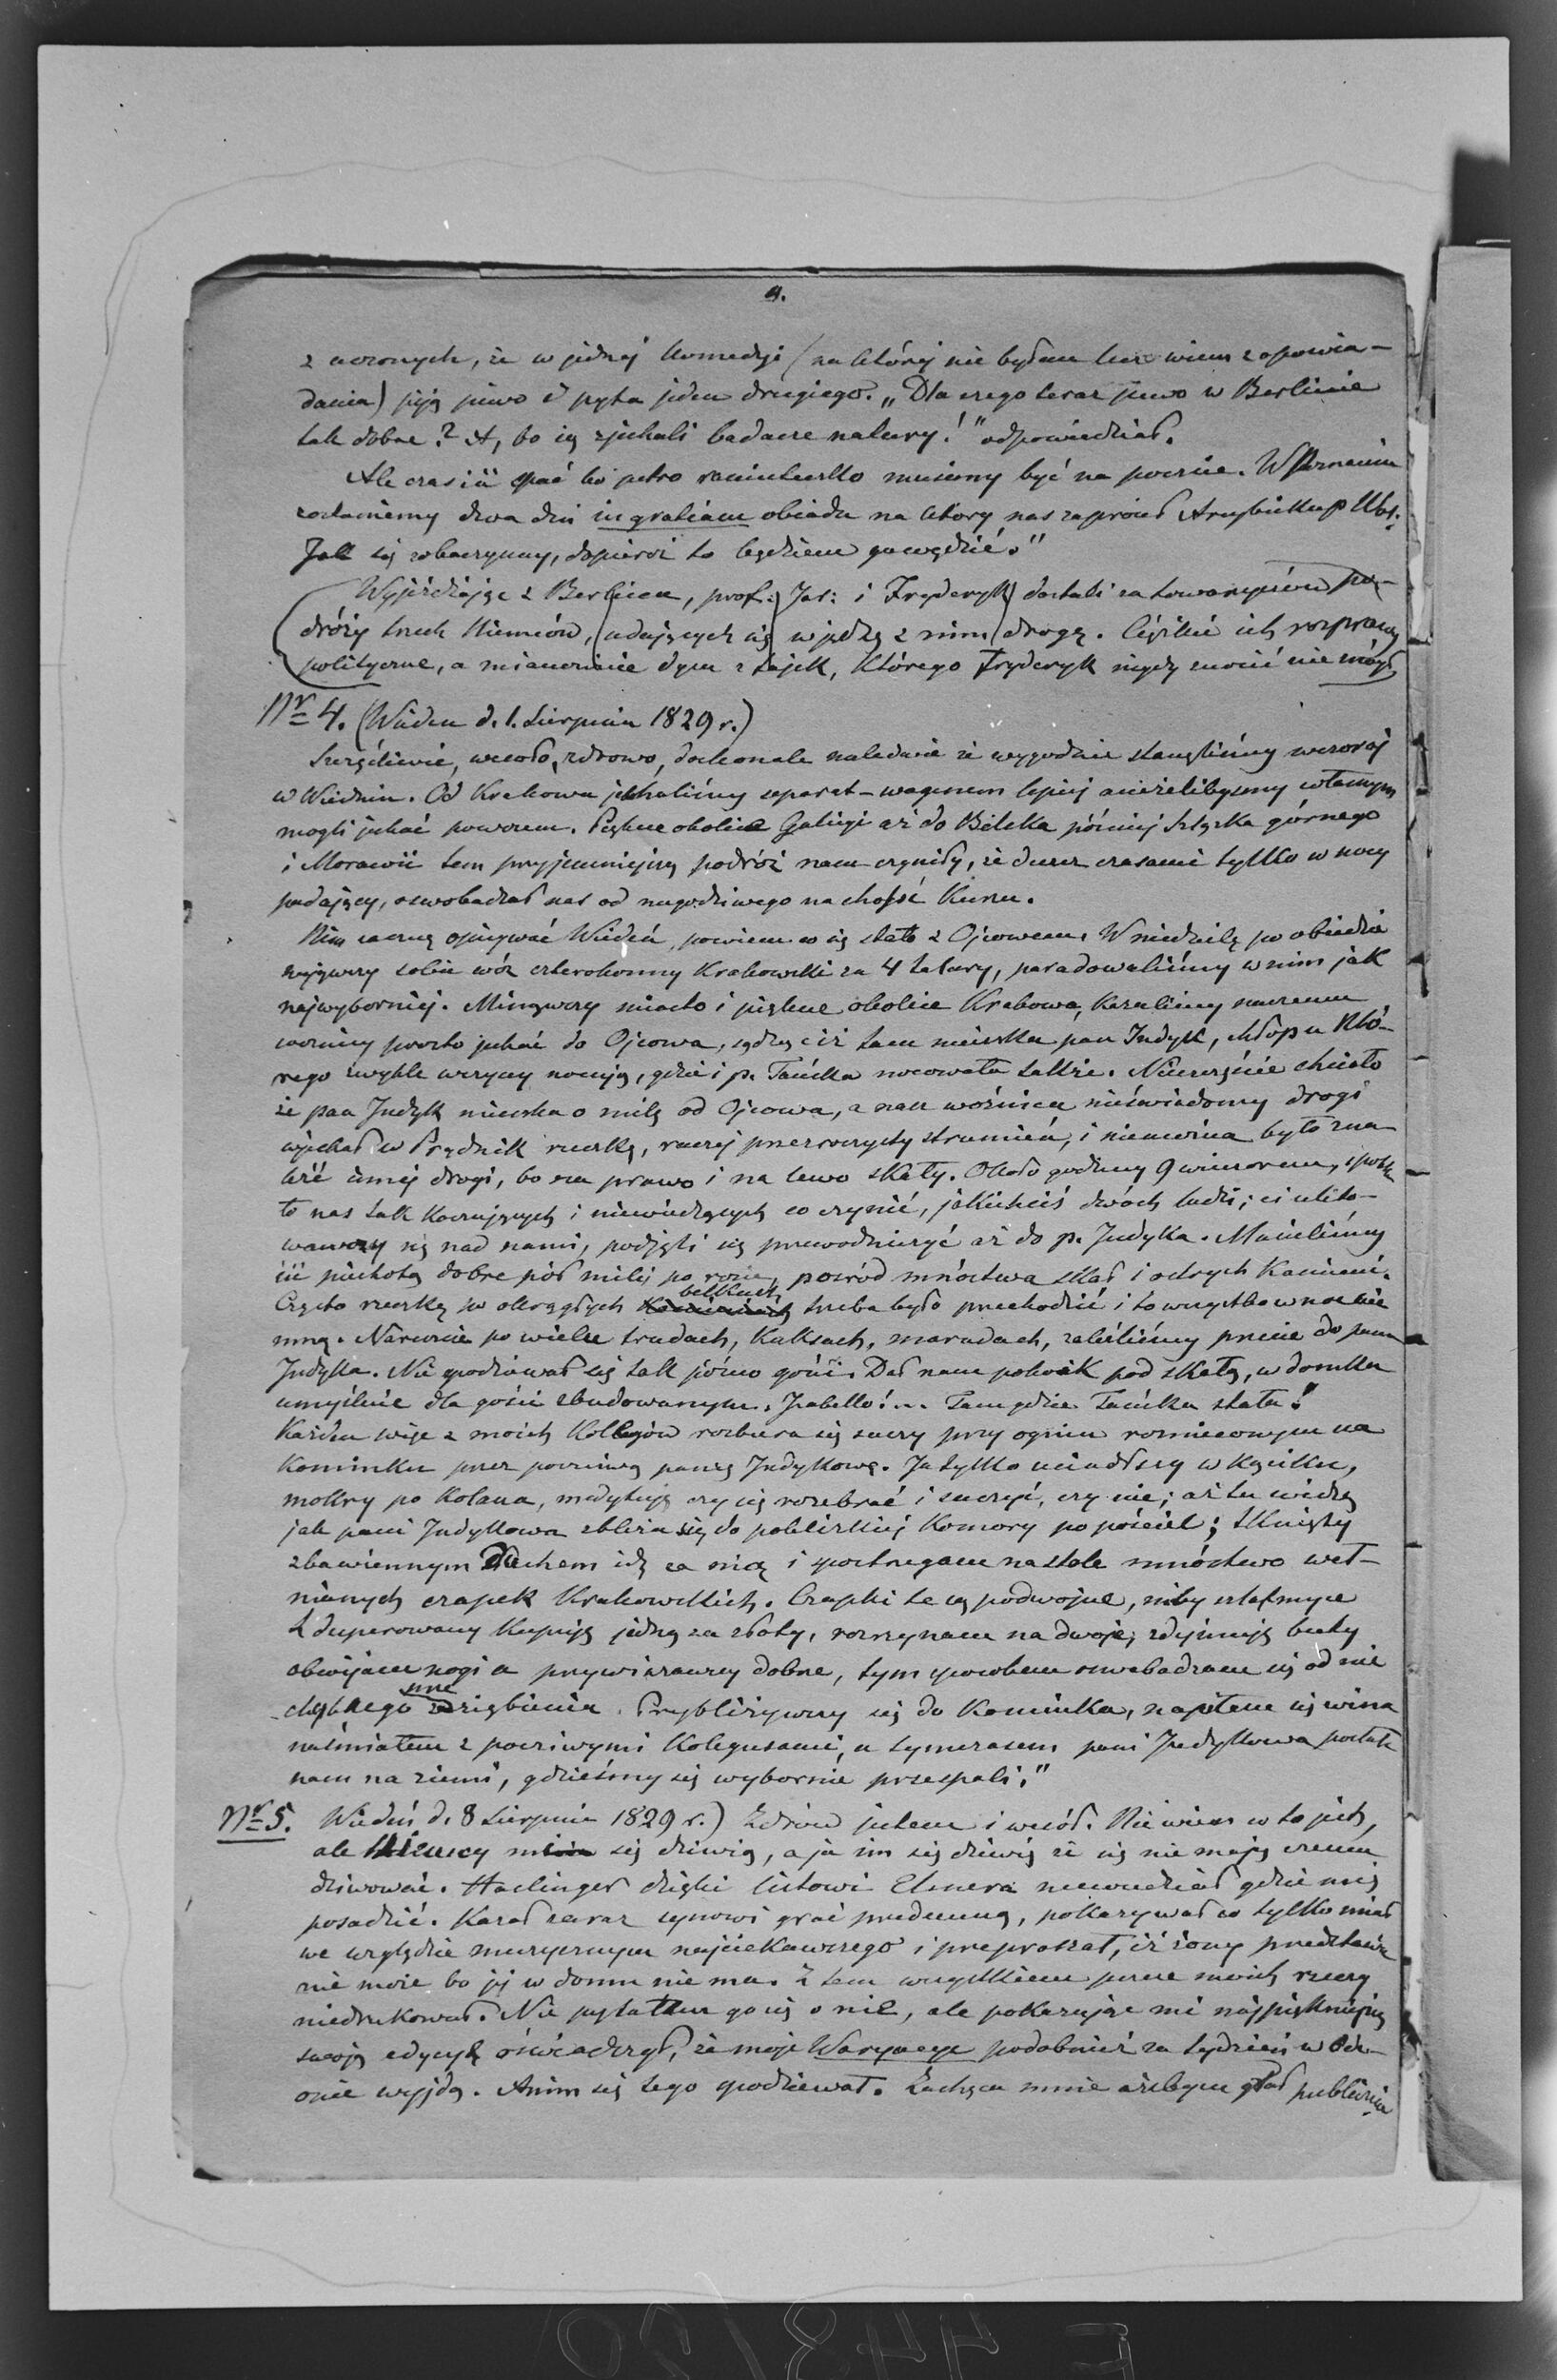 4.
z uczonych, że w jednej komedyi (na której nie byłem lecz wiem z opowia-
dania) piją piwo i pyta jeden drugiego. „Dla czego teraz piwo w Berlinie
tak dobre? A, bo się zjechali badacze natury!" odpowiedział.
Ale czas iść spać bo jutro raniuteczko musimy być na poczcie. W Poznaniu
zostaniemy dwa dni in gratiam obiadu na który nas zaprosił Arcybiskup Wol:
Jak się zobaczymy, dopieroż to będziem gawędzić."
Wyjeżdżając z Berlina, prof. Jar: i Fryderyk dostali za towarzyszów po-
dróży trzech Niemców, udających się w jedną z nimi drogę. Ciężkie ich rozprawy
polityczne, a mianowicie dym z fajek, którego Fryderyk nigdy znosić nie mógł
Nr 4. (Wiedeń d. 1. Sierpnia 1829 r.)
Szczęśliwie, wesoło, zdrowo, doskonale naledwie że wygodnie stanęliśmy wczoraj
w Wiedniu. Od Krakowa jechaliśmy separat-wagenem lepiej aniżelibyśmy własnym
mogli jechać powozem. Piękne okolice Galicyi aż do Bielska później Szląska górnego
i Morawii tem przyjemniejszą podróż nam czyniły, że deszcz czasami tylko w nocy
padający, oswobadzał nas od niegodziwego nachodź kurzu.
Nim zacznę opisywać Wiedeń, powiem co się stało z Ojcowem. W niedzielę po obiedzie
najęwszy sobie wóz czterokonny Krakowski za 4 talary, paradowaliśmy w nim jak
najwyborniej. Minąwszy miasto i piękne okolice Krakowa, kazaliśmy naszemu
woźnicy prosto jechać do Ojcowa, sądząc iż tam mieszka pan Indyk, chłop u któ-
rego zwykle wszyscy nocują, gdzie i p. Tańska nocowała także. Nieszczęście chciało
że pan Indyk mieszka o milę od Ojcowa, a nasz woźnica nieświadomy drogi
wjechał w Prądnik rzeczkę, raczej przezroczysty strumień, i niemożna było zna
leść innej drogi, bo na prawo i na lewo skały. Około godziny 9 wieczorem, spotka
to nas tak koczujących i niewiedzących co czynić, jakichciś dwóch ludzi; ci ulito-
wawszy się nad nami, podjęli się przewodniczyć aż do p. Indyka. Musieliśmy
iść piechotą dobre pół mili po rosie, pośród mnóstwa skał i ostrych kamieni.
Często rzeczkę po okrągłych belkach trzeba było przechodzić i to wszystko w noc cie
mną. Nareszcie po wielu trudach, kuksach, marudach, zaleźliśmy przecie do pana
Indyka. Nie spodziewał się tak późno gości. Dał nam pokoik pod skałą, w domku
umyślnie dla gości zbudowanym. Izabello!... Tam gdzie Tańska stała!
Każden więc z moich kollegów rozbiera się suszy przy ogniu roznieconym na
kominku przez poczciwą panią Indykową. Ja tylko usiadłszy w kąciku,
mokry po kolana, medytuję czy się rozebrać i suszyć, czy nie; aż tu widzę
jak pani Indykowa zbliża się do pobliskiej komory po pościel; tknięty
zbawiennym duchem idę za nią i spostrzegam na stole mnóstwo weł-
nianych czapek Krakowskich. Czapki te są podwójne, niby szlafmyce
Zdesperowany kupuję jednę za złoty, rozrzynam na dwoje, zdejmuję buty
obwijam nogi a przywiązawszy dobrze, tym sposobem oswobadzam się od nie
chybnego prze ziębienia. Przybliżywszy się do kominka, napiłem się wina
naśmiałem z poczciwymi kolegusami, a tymczasem pani Indykowa posłała
nam na ziemi, gdzieśmy się wybornie przespali."
Nr 5. Wiedeń d. 8 Sierpnia 1829 r.) Zdrów jestem i wesół. Nie wiem co to jest,
ale Niemcy się dziwią, a ja im się dziwię że się nie mają czemu
dziwować. Haslinger dzięki listowi Elsnera niewiedział gdzie mię
posadzić. Kazał zaraz synowi grać przedemną, pokazywał co tylko miał
we względzie muzycznym najciekawszego i przepraszał, iż żony przedstawić
nie może bo jej w domu nie ma. Z tem wszystkiem przecie moich rzeczy
niedrukował. Nie pytałem go się o nie, ale pokazując mi najpiękniejszą
swoją edycyę oświadczył, że moje Waryacye podobnież za tydzień w Ode-
onie wyjdą. Anim się tego spodziewał. Zachęca mnie ażebym grał publicznie